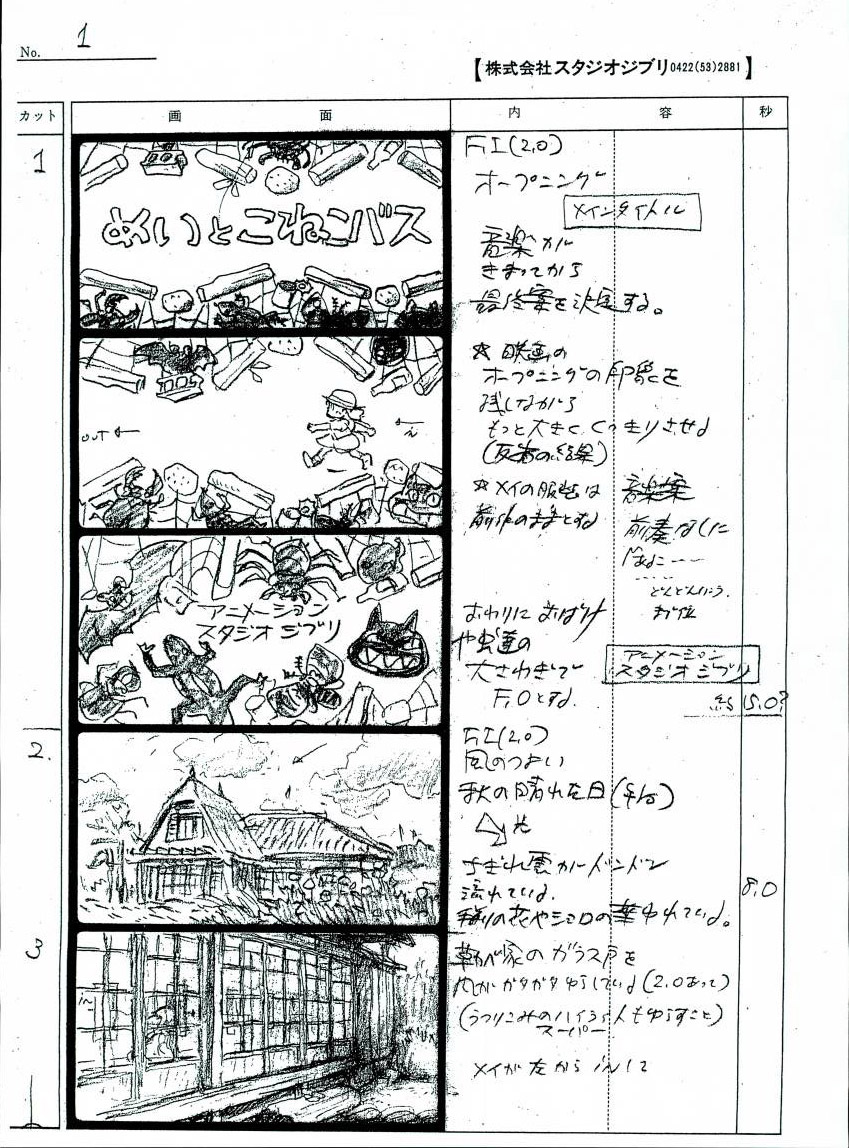 No. 1
【株式会社スタジオジブリ0422(53)2881】
カット
画 面
内 容
秒
1
めいとこねこバス
F.I(2.0)
オープニング
メインタイトル
音楽が
きまってから
最終案を決定する。
OUT ←
← in
☆ 映画の
オープニングの印象を
残しながら
もっと大きく、くっきりさせる
☆ メイの服装は
前作のままとする
音楽
前奏なしに
アニメーション
スタジオ ジブリ
おわりに おばけ
や虫達の
大さわぎで
F.Oとする。
アニメーション
スタジオ ジブリ
15.0?
2.
F.I(2.0)
風のつよい
秋の晴れた日(午后)
光
ちぎれ雲がドンドン
流れている。
8.0
3
草かべ家のガラス戸を
風がガタガタゆらしている(2.0あって)
in
スーパー
メイが左から inして